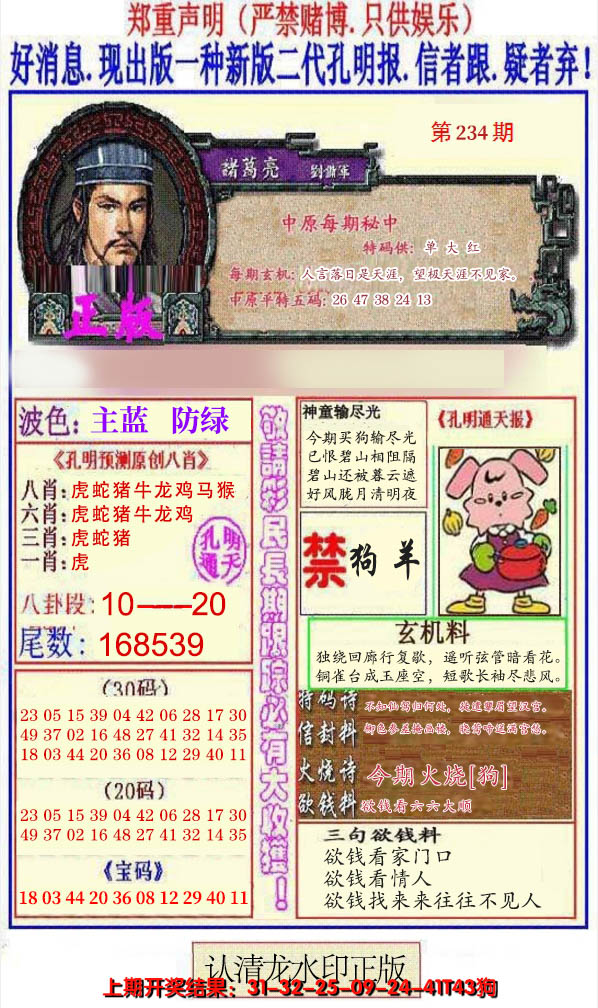 郑重声明（严禁赌博.只供娱乐）
好消息.现出版一种新版二代孔明报.信者跟.疑者弃!
第234期
諸葛亮
劉備軍
中原每期秘中
特码供：单大红
每期玄机：人言落日是天涯，望极天涯不见家。
中原平特五码：26 47 38 24 13
正版
波色：主蓝 防绿
《孔明预测原创八肖》
八肖：虎蛇猪牛龙鸡马猴
六肖：虎蛇猪牛龙鸡
三肖：虎蛇猪
一肖：虎
孔明
通天
八卦段：10——20
尾数：168539
（30码）
23 05 15 39 04 42 06 28 17 30
49 37 02 16 48 27 41 32 14 35
18 03 44 20 36 08 12 29 40 11
（20码）
23 05 15 39 04 42 06 28 17 30
49 37 02 16 48 27 41 32 14 35
《宝码》
18 03 44 20 36 08 12 29 40 11
敬請彩民長期跟踪必有大收獲！
神童输尽光
今期买狗输尽光
已恨碧山相阻隔
碧山还被暮云遮
好风胧月清明夜
《孔明通天报》
禁 狗 羊
玄机料
独绕回廊行复歇，遥听弦管暗看花。
铜雀台成玉座空，短歌长袖尽悲风。
特码诗
不知仙驾归何处，徒遣颦眉望汉宫。
信封料
柳色参差掩画楼，晓莺啼送满宫愁。
火烧诗
今期火烧[狗]
欲钱料
欲钱看六六大顺
三句欲钱料
欲钱看家门口
欲钱看情人
欲钱找来来往往不见人
认清龙水印正版
上期开奖结果：31-32-25-09-24-41T43狗